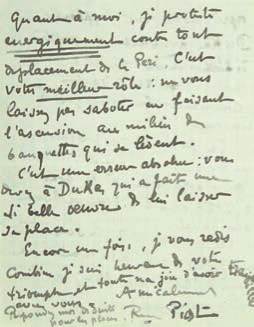 Quant à moi, je proteste
energiquement contre tout
déplacement de la Péri. C'est
votre meilleur rôle : ne vous
laissez pas saboter en faisant
l'ascension au milieu de
banquettes qui se lèvent.
C'est une erreur absolue : vous
devez à Dukas qui a fait une
si belle œuvre de lui laisser
sa place.
Encore une fois, je vous redis
combien je suis heureux de votre
triomphe et toute ma joie d'avoir
avec vous. Amicalement
Répondez moi de suite
pour les places.